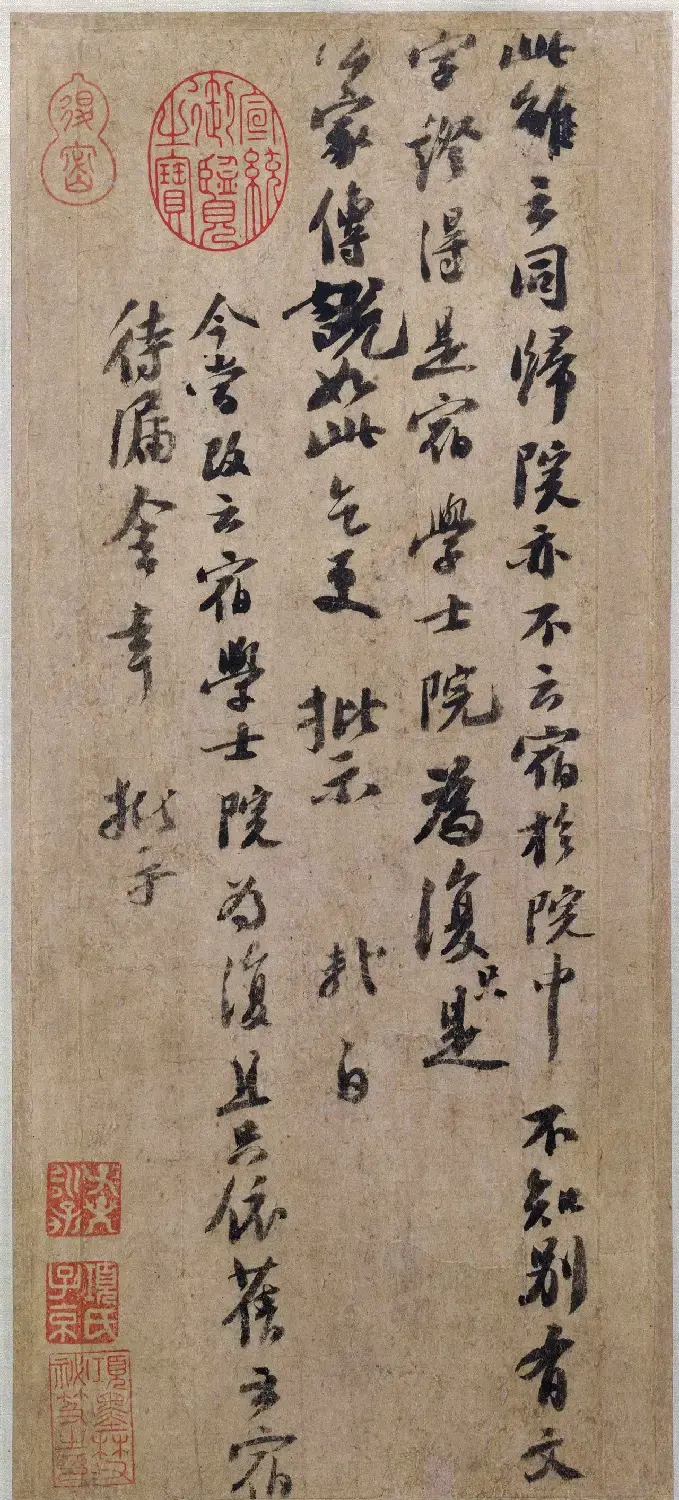 此雖云同歸院亦不云宿於院中不知別有文
字證得是宿學士院為復只是
公家傳說如此乞更批示 白
今當改云宿學士院為復且只依舊云宿
待漏舍幸批示
宣統御覽之寶
退密
項氏子京
項墨林父祕笈之印